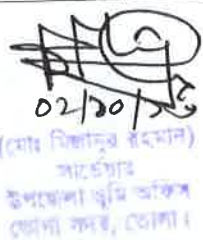 02/10/২৩
(মোঃ মিজানুর রহমান)
সার্ভেয়ার
উপজেলা ভূমি অফিস
ভোলা সদর, ভোলা।